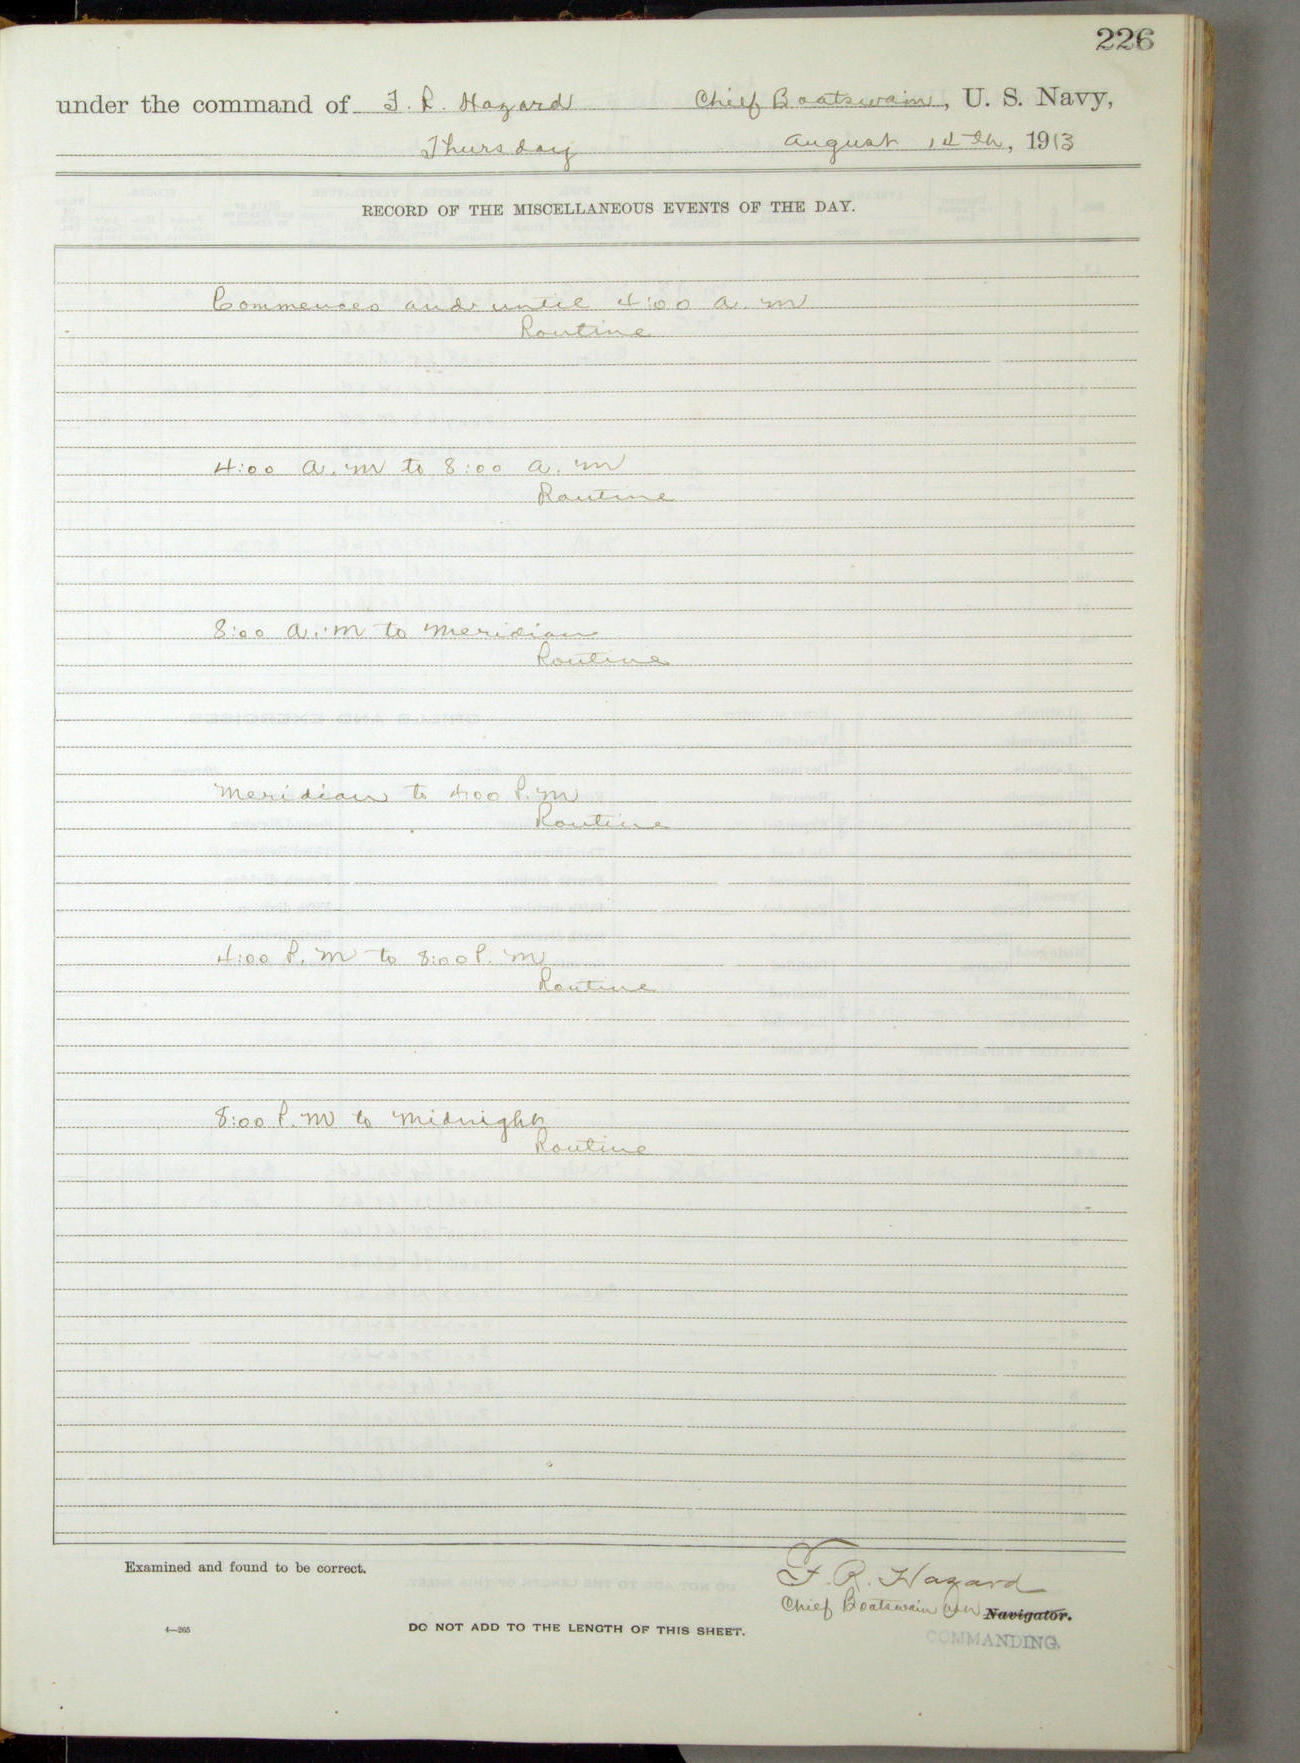 226
under the command of F. R. Hazard Chief Boatswain, U. S. Navy,
Thursday August 14th, 1913
RECORD OF THE MISCELLANEOUS EVENTS OF THE DAY.
Commences and until 4:00 a. m
Routine
4:00 a. m to 8:00 a. m
Routine
8:00 a. m to meridian
Routine
Meridian to 4:00 P. m
Routine
4:00 P. m to 8:00 P. m
Routine
8:00 P. m to midnight
Routine
Examined and found to be correct.
F. R. Hazard
Chief Boatswain USN Navigator.
COMMANDING.
4—265
DO NOT ADD TO THE LENGTH OF THIS SHEET.